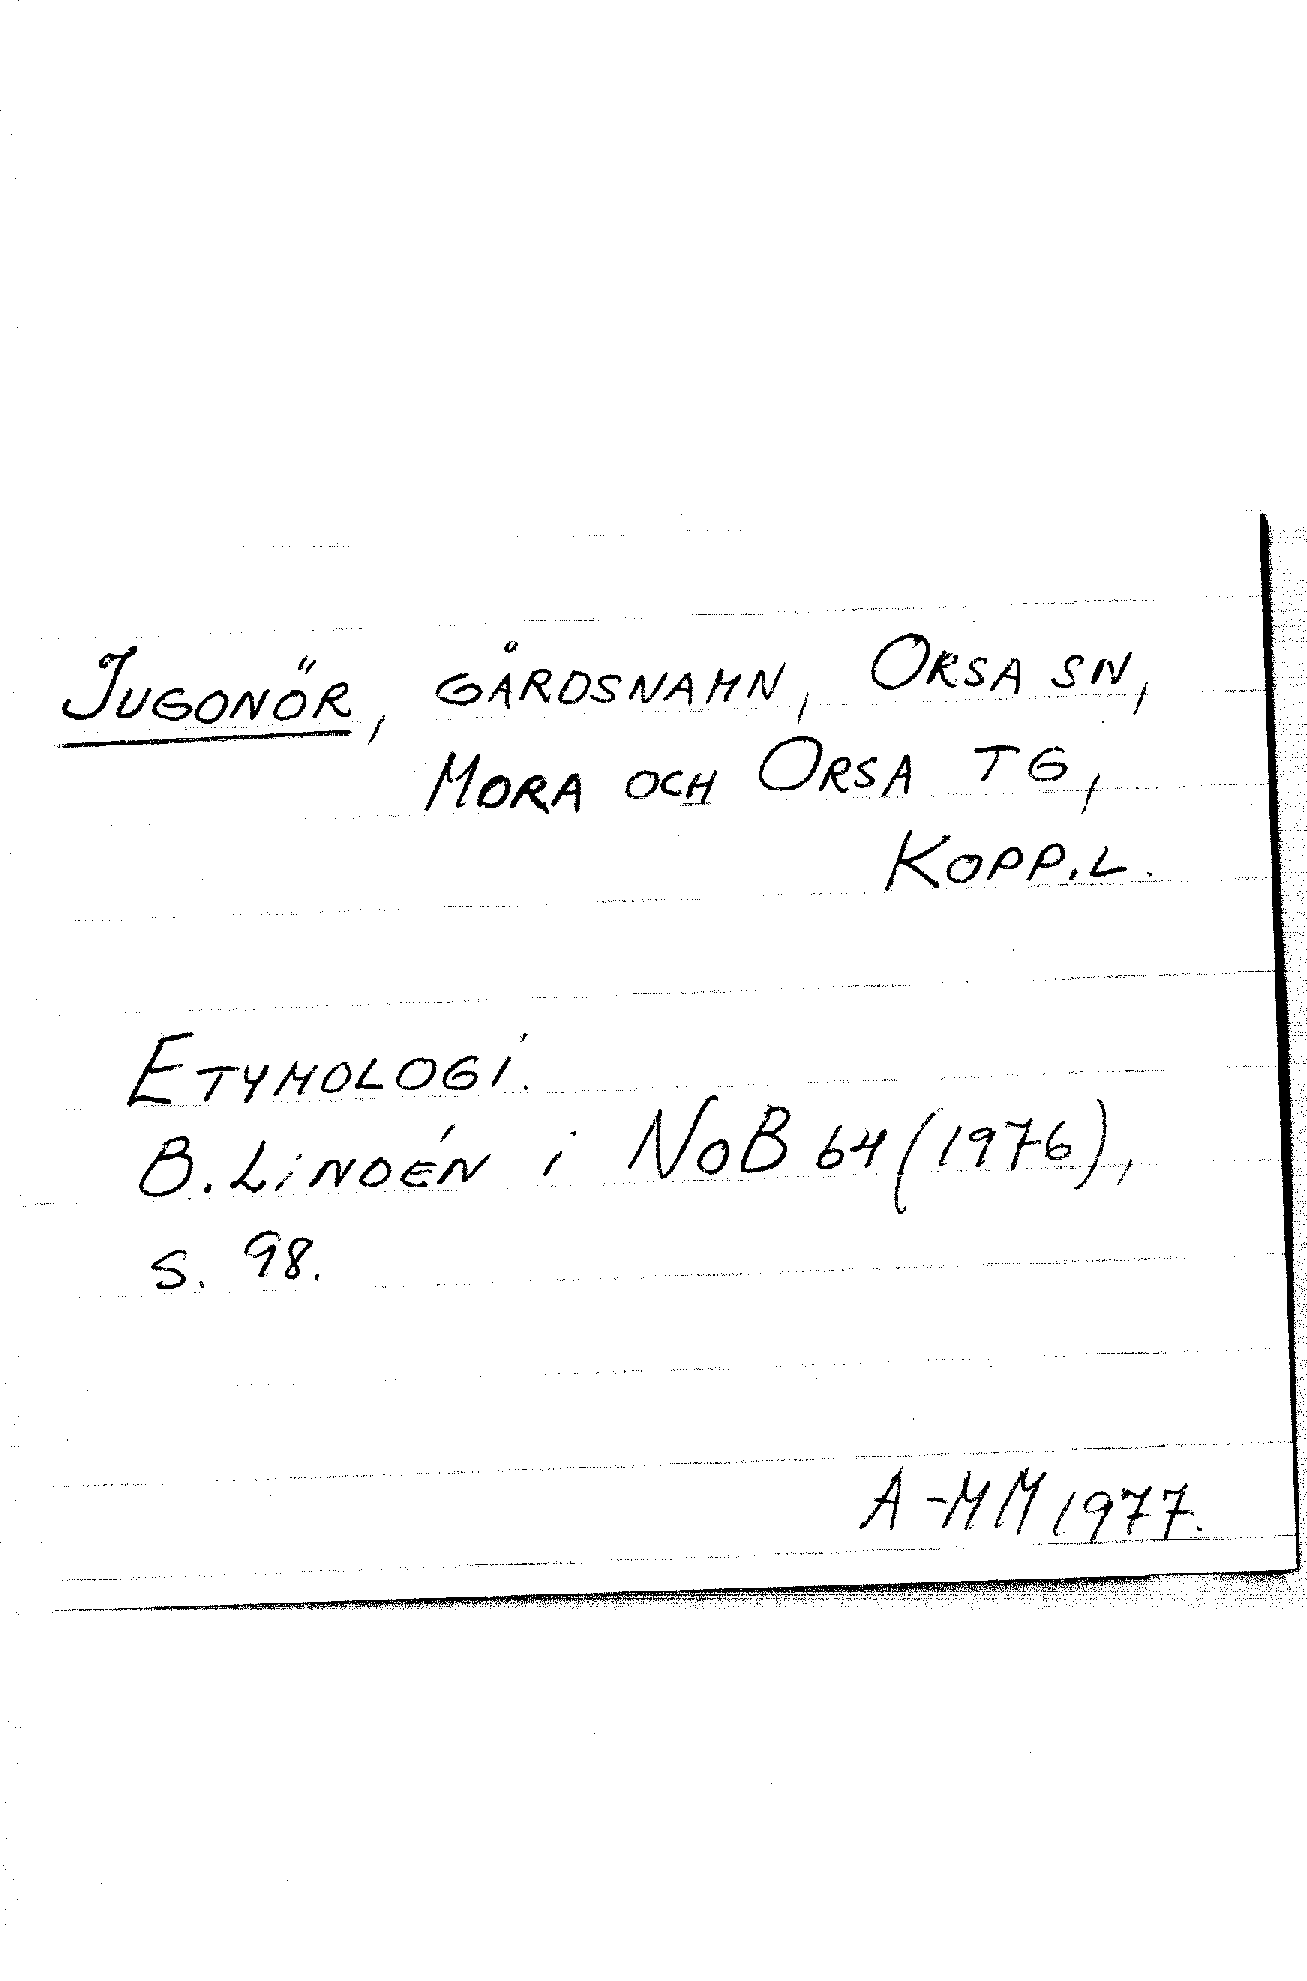 Jugonör, gårdsnamn, Orsa sn,
Mora och Orsa tg,
Kopp.l.
Etymologi.
B. Lindén i NoB 64 (1976),
s. 98.
A-MM 1977.